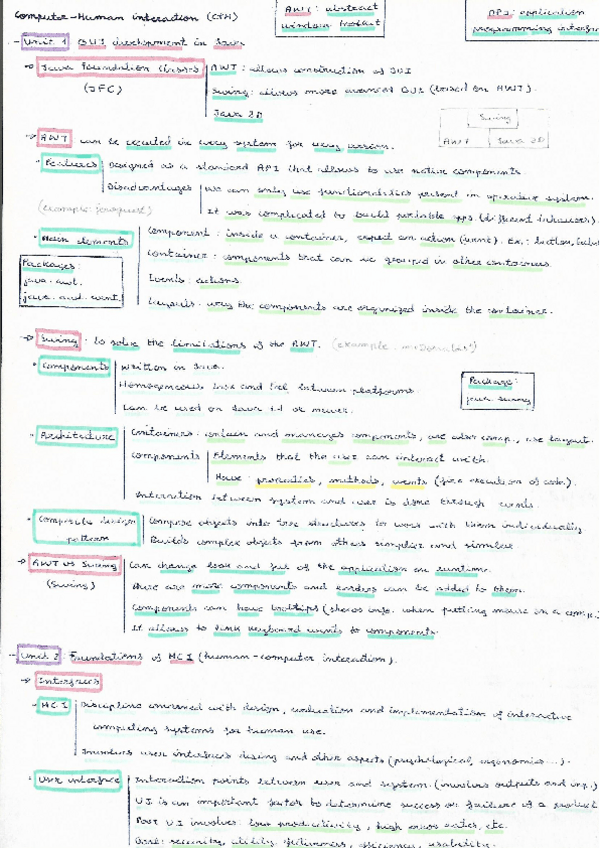 Computer-Human interaction (CHI)
AWT: abstract
window toolkit
API: application
programming interface
- Unit 1 GUI development in Java
→ Java Foundation Classes
(JFC)
AWT: allows construction of GUI
Swing: allows more advanced GUI (based on AWT).
Java 2D
Swing
AWT Java 2D
→ AWT can be executed in every system for every version.
· Features
Designed as a standard API that allows to use native components.
Disadvantages
We can only use functionalities present in operative system.
It was complicated to build portable apps (different behaviours).
(example:
· Main elements
Component: inside a container, expect an action (event). Ex.: button,
Container: components that can be grouped in other containers.
Events: actions.
Layouts: way the components are organized inside the container.
Packages:
java.awt.
java.awt.event.
→ Swing: to solve the limitations of the AWT. (example
· Components
Written in Java.
Homogeneous look and feel between platforms.
Can be used on Java 1.1 or newer.
Package:
javax.swing
· Architecture
Containers: contain and manages components, are also comp., use layout.
Components
Elements that the user can interact with.
Have: properties, methods, events (fire execution of code).
Interaction between system and user is done through events.
· Composite design
pattern
Compose objects into tree structures to work with them individually
Builds complex objects from others simpler and similar.
→ AWT vs Swing
(Swing)
Can change look and feel of the application on runtime.
There are more components and borders can be added to them.
Components can have tooltips (shows info. when putting mouse on a comp.)
It allows to link keyboard events to components.
- Unit 2 Foundations of HCI (human-computer interaction).
→ Interfaces
· HCI
Discipline concerned with design, evaluation and implementation of interactive
computing systems for human use.
Involves user interfaces desing and other aspects (psychological, ergonomics...).
· User interface
Interaction points between user and system. (involves outputs and inp.)
UI is an important factor to determine success or failure of a product
Poor UI involves: low productivity, high error rates, etc.
Goal: security, utility, effectiveness, efficiency, usability.